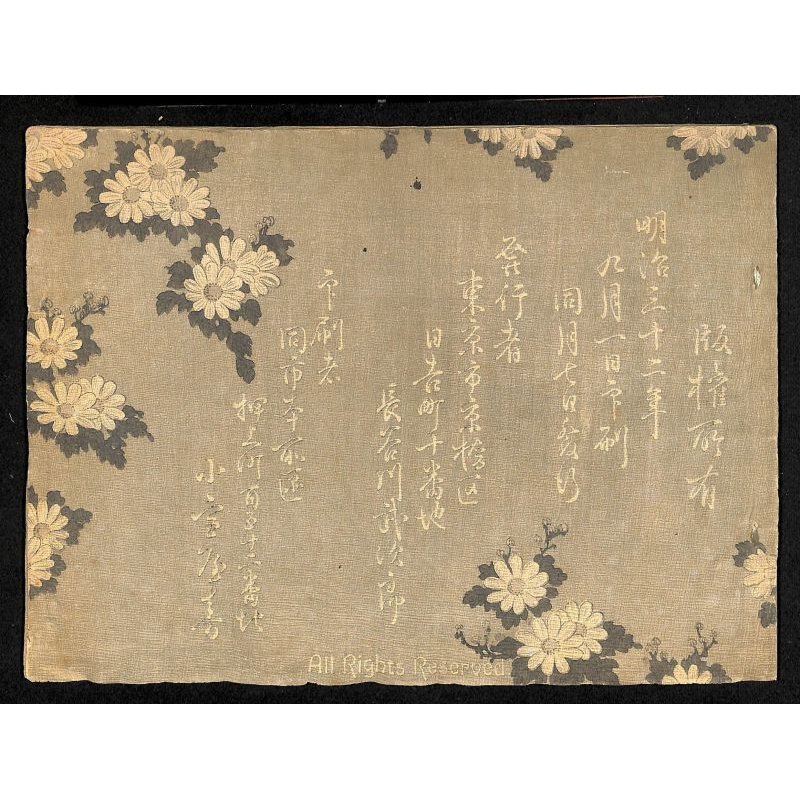 版權所有
明治三十二年
九月一日印刷
同月七日發行
發行者
東京市京橋區
日吉町十番地
長谷川武次郎
印刷者
同市本所區
押上町百五十六番地
小宮屋壽
All Rights Reserved